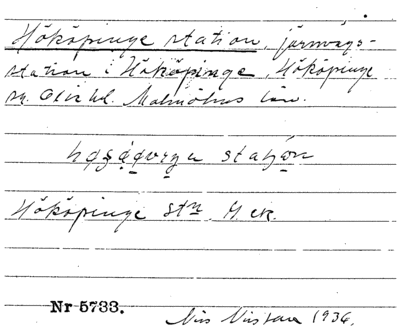 Hököpinge station, järnvägs-
station i Hököpinge, Hököpinge
sn. Oxie hd. Malmöhus län.
station
Hököpinge stn. G ek.
Nr 5733.
1936.